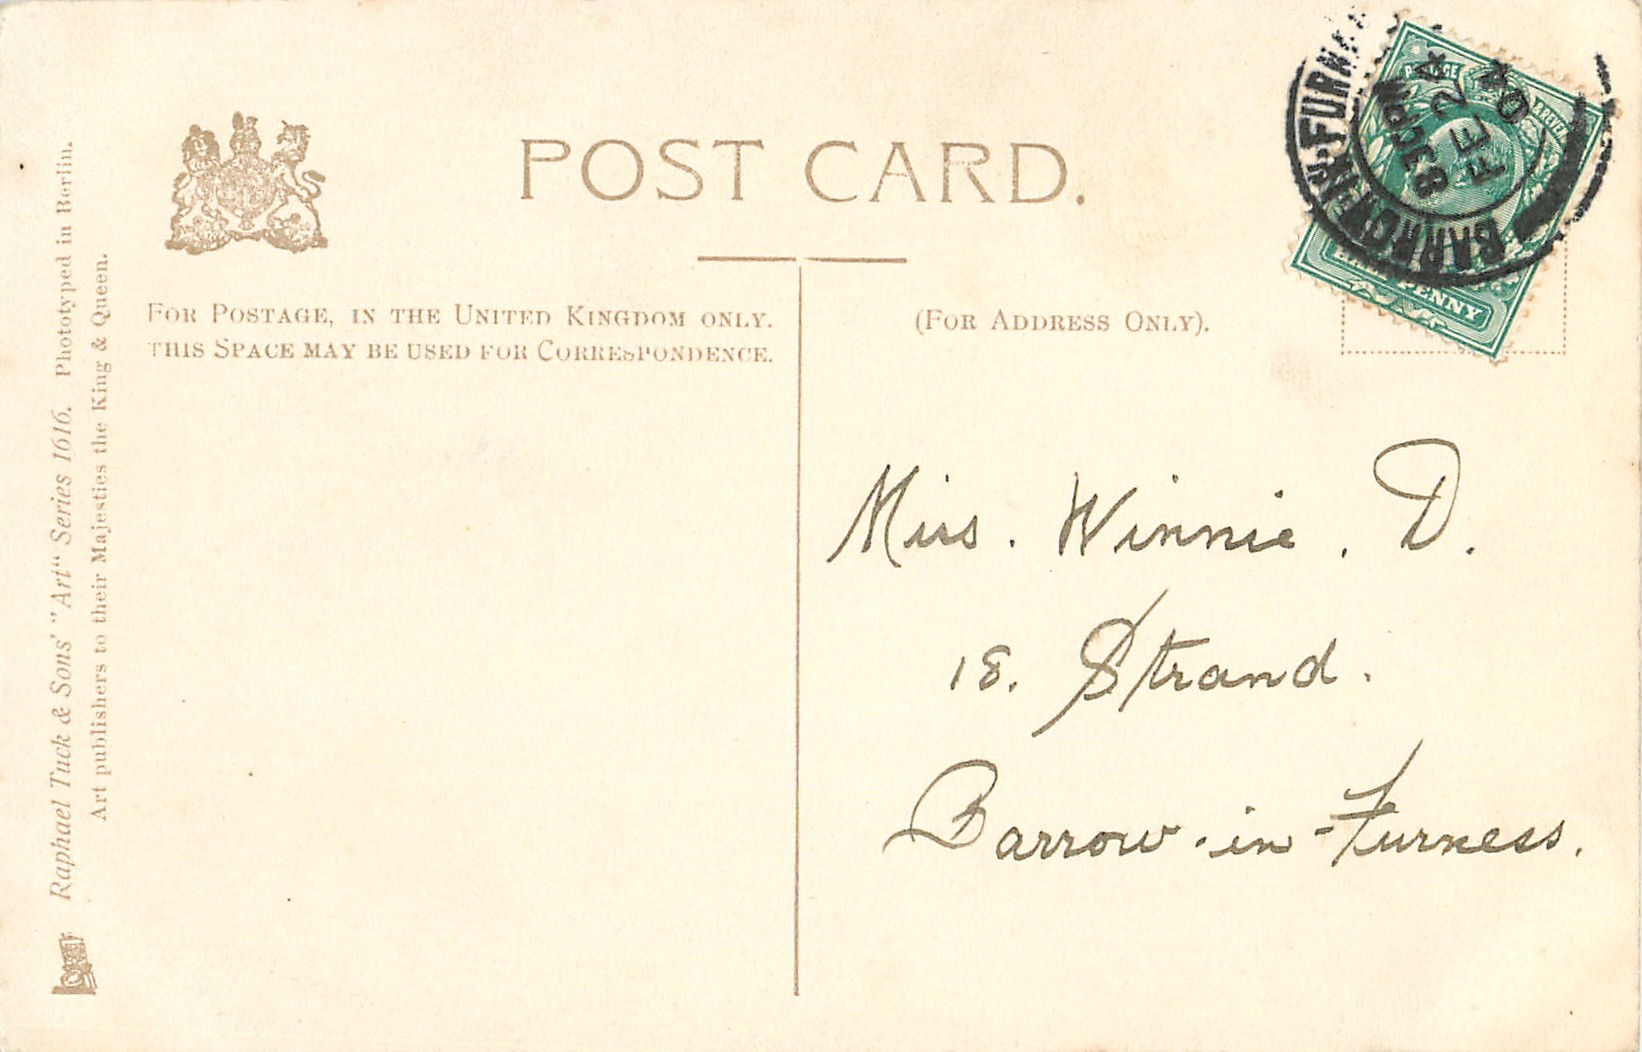 POST CARD.
FOR POSTAGE, IN THE UNITED KINGDOM ONLY.
THIS SPACE MAY BE USED FOR CORRESPONDENCE.
(FOR ADDRESS ONLY).
Miss. Winnie. D.
18. Strand.
Barrow-in-Furness.
Raphael Tuck & Sons' "Art“ Series 1616. Phototyped in Berlin.
Art publishers to their Majesties the King & Queen.
POSTAGE
PENNY
8 30 PM
FE 24
04